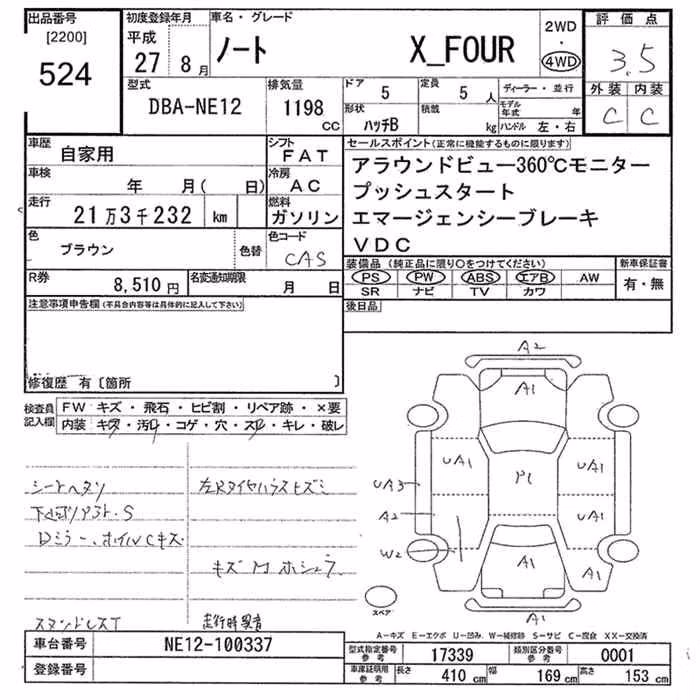 出品番号
[2200]
524
初度登録年月
平成
27 8月
車名・グレード
ノート X_FOUR
2WD
・
4WD
評価点
3.5
外装 内装
C C
型式
DBA-NE12
排気量
1198
CC
ドア
5
定員
5 人
形状
ハッチB
積載
kg
ディーラー・並行
モデル年式 年
ハンドル 左・右
車歴
自家用
シフト
FAT
車検
年 月( 日)
冷房
AC
走行
21万3千232 km
燃料
ガソリン
色
ブラウン
色替
色コード
CAS
R券
8,510円
名変通知期限
月 日
セールスポイント(正常に機能するものに限ります)
アラウンドビュー360℃モニター
プッシュスタート
エマージェンシーブレーキ
VDC
装備品(純正品に限り○をつけてください)
PS PW ABS エアB AW
SR ナビ TV カワ
新車保証書
有・無
注意事項申告欄(不具合内容等は具体的に記入して下さい)
後日品
修復歴 有〔箇所 〕
検査員記入欄
FW キズ・飛石・ヒビ割・リペア跡・×要
内装 キズ・汚レ・コゲ・穴・スレ・キレ・破レ
シートヘタリ
Dミラー、ホイルCキズ
左Rタイヤハウスキズミ
スタンドレスT
走行時異音
A2
A1
UA1
UA1
P1
UA3
A2
UA1
W2
A1
A1
A1
スペア
A-キズ E-エクボ U-凹み W-補修跡 S-サビ C-腐食 XX-交換済
車台番号
NE12-100337
登録番号
型式指定番号
参考
17339
類別区分番号
参考
0001
車庫証明用
参考
長さ 410 cm 幅 169 cm 高さ 153 cm